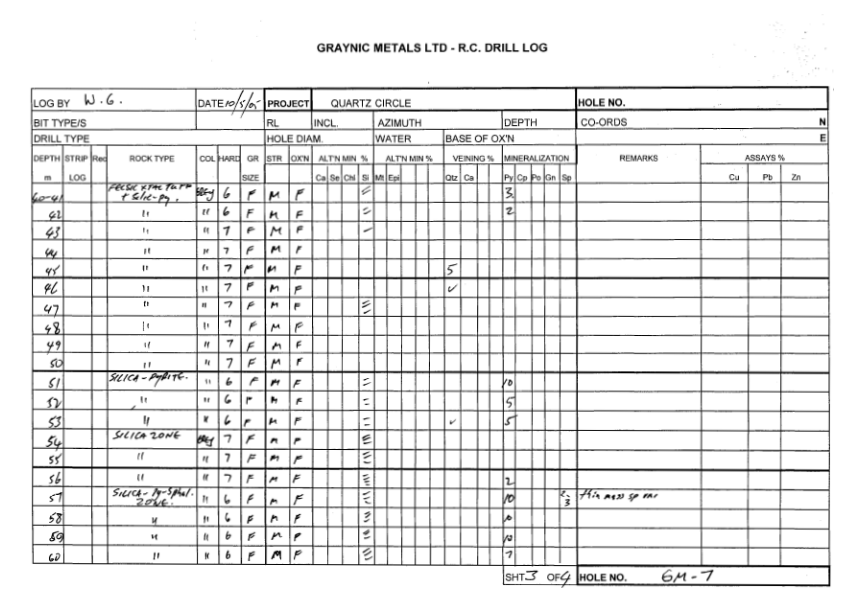 GRAYNIC METALS LTD - R.C. DRILL LOG
LOG BY W.G. DATE 10/5/05 PROJECT QUARTZ CIRCLE HOLE NO.
BIT TYPE/S RL INCL. AZIMUTH DEPTH CO-ORDS N
DRILL TYPE HOLE DIAM. WATER BASE OF OX'N E
DEPTH STRIP Rec ROCK TYPE COL HARD GR STR OX'N ALT'N MIN % ALT'N MIN % VEINING % MINERALIZATION REMARKS ASSAYS %
m LOG SIZE Ca Se Chl Si Mt Epi Qtz Ca Py Cp Po Gn Sp Cu Pb Zn
40-41 FELSIC XTAL TUFF + Silic-py. 6 F M F = 3
42 " " 6 F M F = 2
43 " " 7 F M F -
44 " " 7 F M F
45 " " 7 F M F 5
46 " " 7 F M F ✓
47 " " 7 F M F ≡
48 " " 7 F M F
49 " " 7 F M F
50 " " 7 F M F
51 SILICA - PYRITE. " 6 F M F = 10
52 " " 6 F M F = 5
53 " " 6 F M F = ✓ 5
54 SILICA ZONE 7 F M F ≡
55 " " 7 F M F ≡
56 " " 7 F M F ≡ 2
57 SILICA - Py-Sphal. ZONE. " 6 F M F ≡ 10 2-3 thin mass sp
58 " " 6 F M F ≡ 10
59 " " 6 F M F ≡ 10
60 " " 6 F M F ≡ 7
SHT 3 OF 4 HOLE NO. GM-7